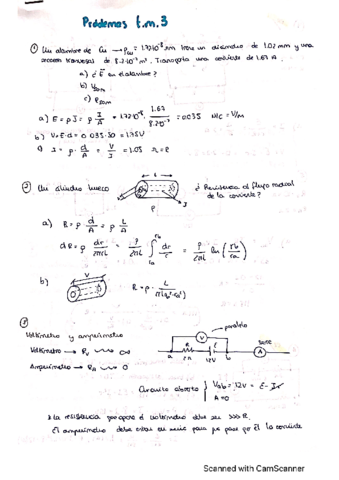 Problemas t.m.3
① Un alambre de Cu → ρcu = 1.72·10⁻⁸ Ωm tiene un diámetro de 1.02 mm y una
sección transversal de 8.2·10⁻⁷ m². Transporta una corriente de 1.67 A.
a) ¿E en el alambre?
b) V50m
c) R50m
a) E = ρJ = ρ I/A = 1.72·10⁻⁸ · 1.67/8.2·10⁻⁷ = 0.035 N/C = V/m
b) V = E·d = 0.035·50 = 1.75V
= ρ · d/A = V/I = 1.05
② Un cilindro hueco
¿Resistencia al flujo radial
de la corriente?
L
ρ
a) R = ρ d/A = ρ L/A
dR = ρ dr/2πrL = ρ/2πL ∫ dr/r = ρ/2πL ln(rb/ra)
b) R = ρ · L/π(rb²-ra²)
V
③
Voltímetro y amperímetro
Voltímetro → Rv → ∞
Amperímetro → RA → 0
paralelo
serie
V
a
R
2Ω
12V
A
Circuito abierto { Vab = 12V = E - Ir
A = 0
la resistencia que opone el voltímetro debe ser >>> R.
El amperímetro debe estar en serie para que pase por él la corriente
Scanned with CamScanner